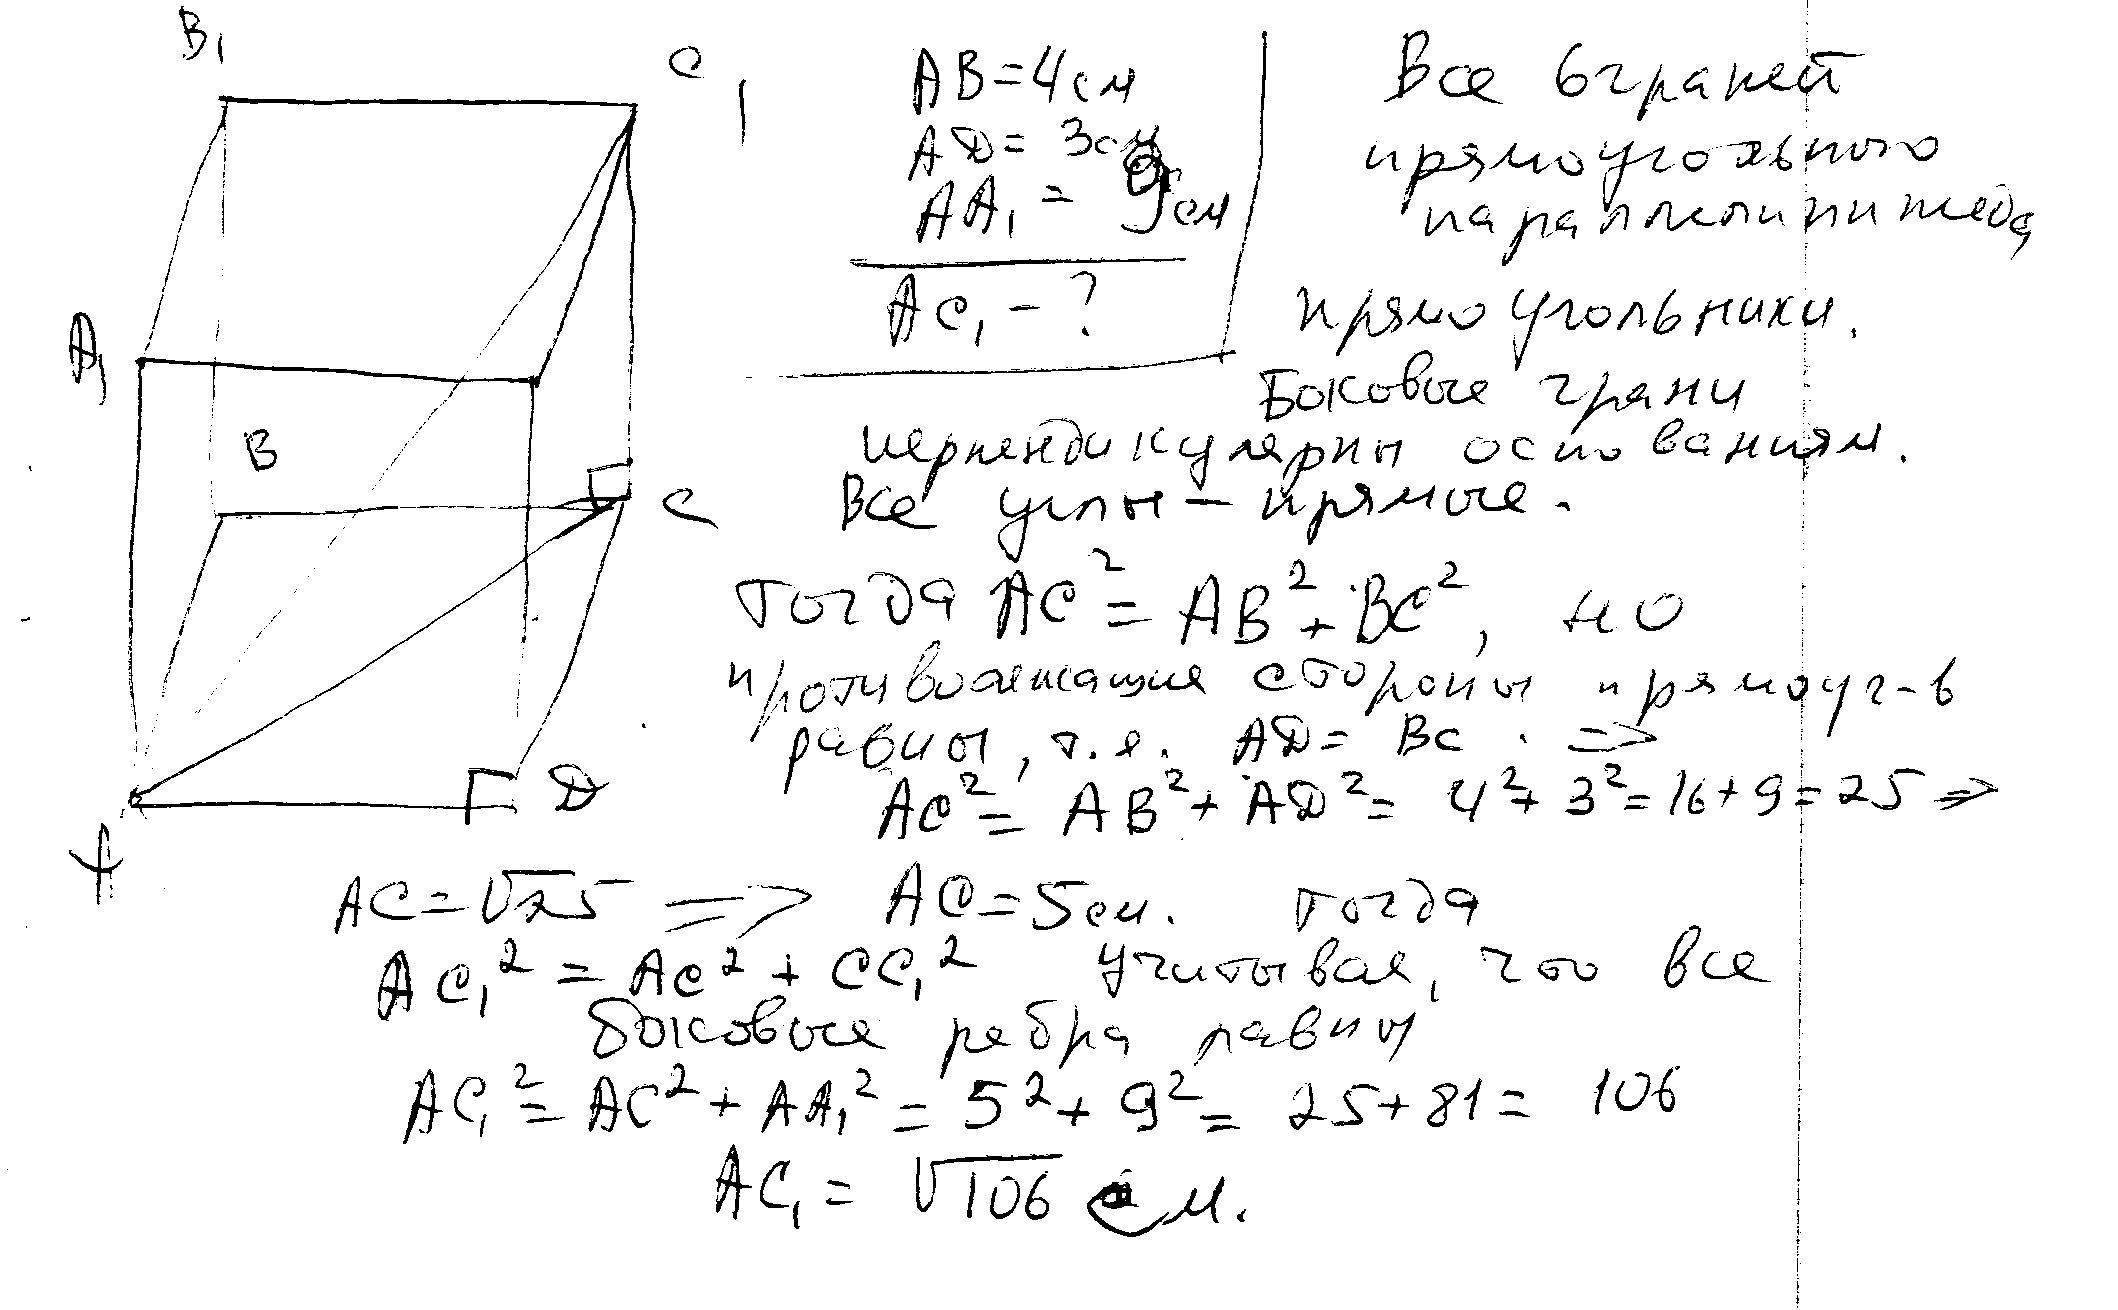 B₁
C₁
AB = 4 см
AD = 3 см
AA₁ = 9 см
AC₁ - ?
Все 6 граней
прямоугольного
параллелепипеда
прямоугольники.
Боковые грани
перпендикулярны основаниям.
Все углы - прямые.
A₁
B
C
D
A
тогда AC² = AB² + BC², но
противолежащие стороны прямоуг-в
равны, т.е. AD = BC. =>
AC² = AB² + AD² = 4² + 3² = 16 + 9 = 25 =>
AC = √25 => AC = 5 см. тогда
AC₁² = AC² + CC₁² учитывая, что все
боковые ребра равны
AC₁² = AC² + AA₁² = 5² + 9² = 25 + 81 = 106
AC₁ = √106 см.